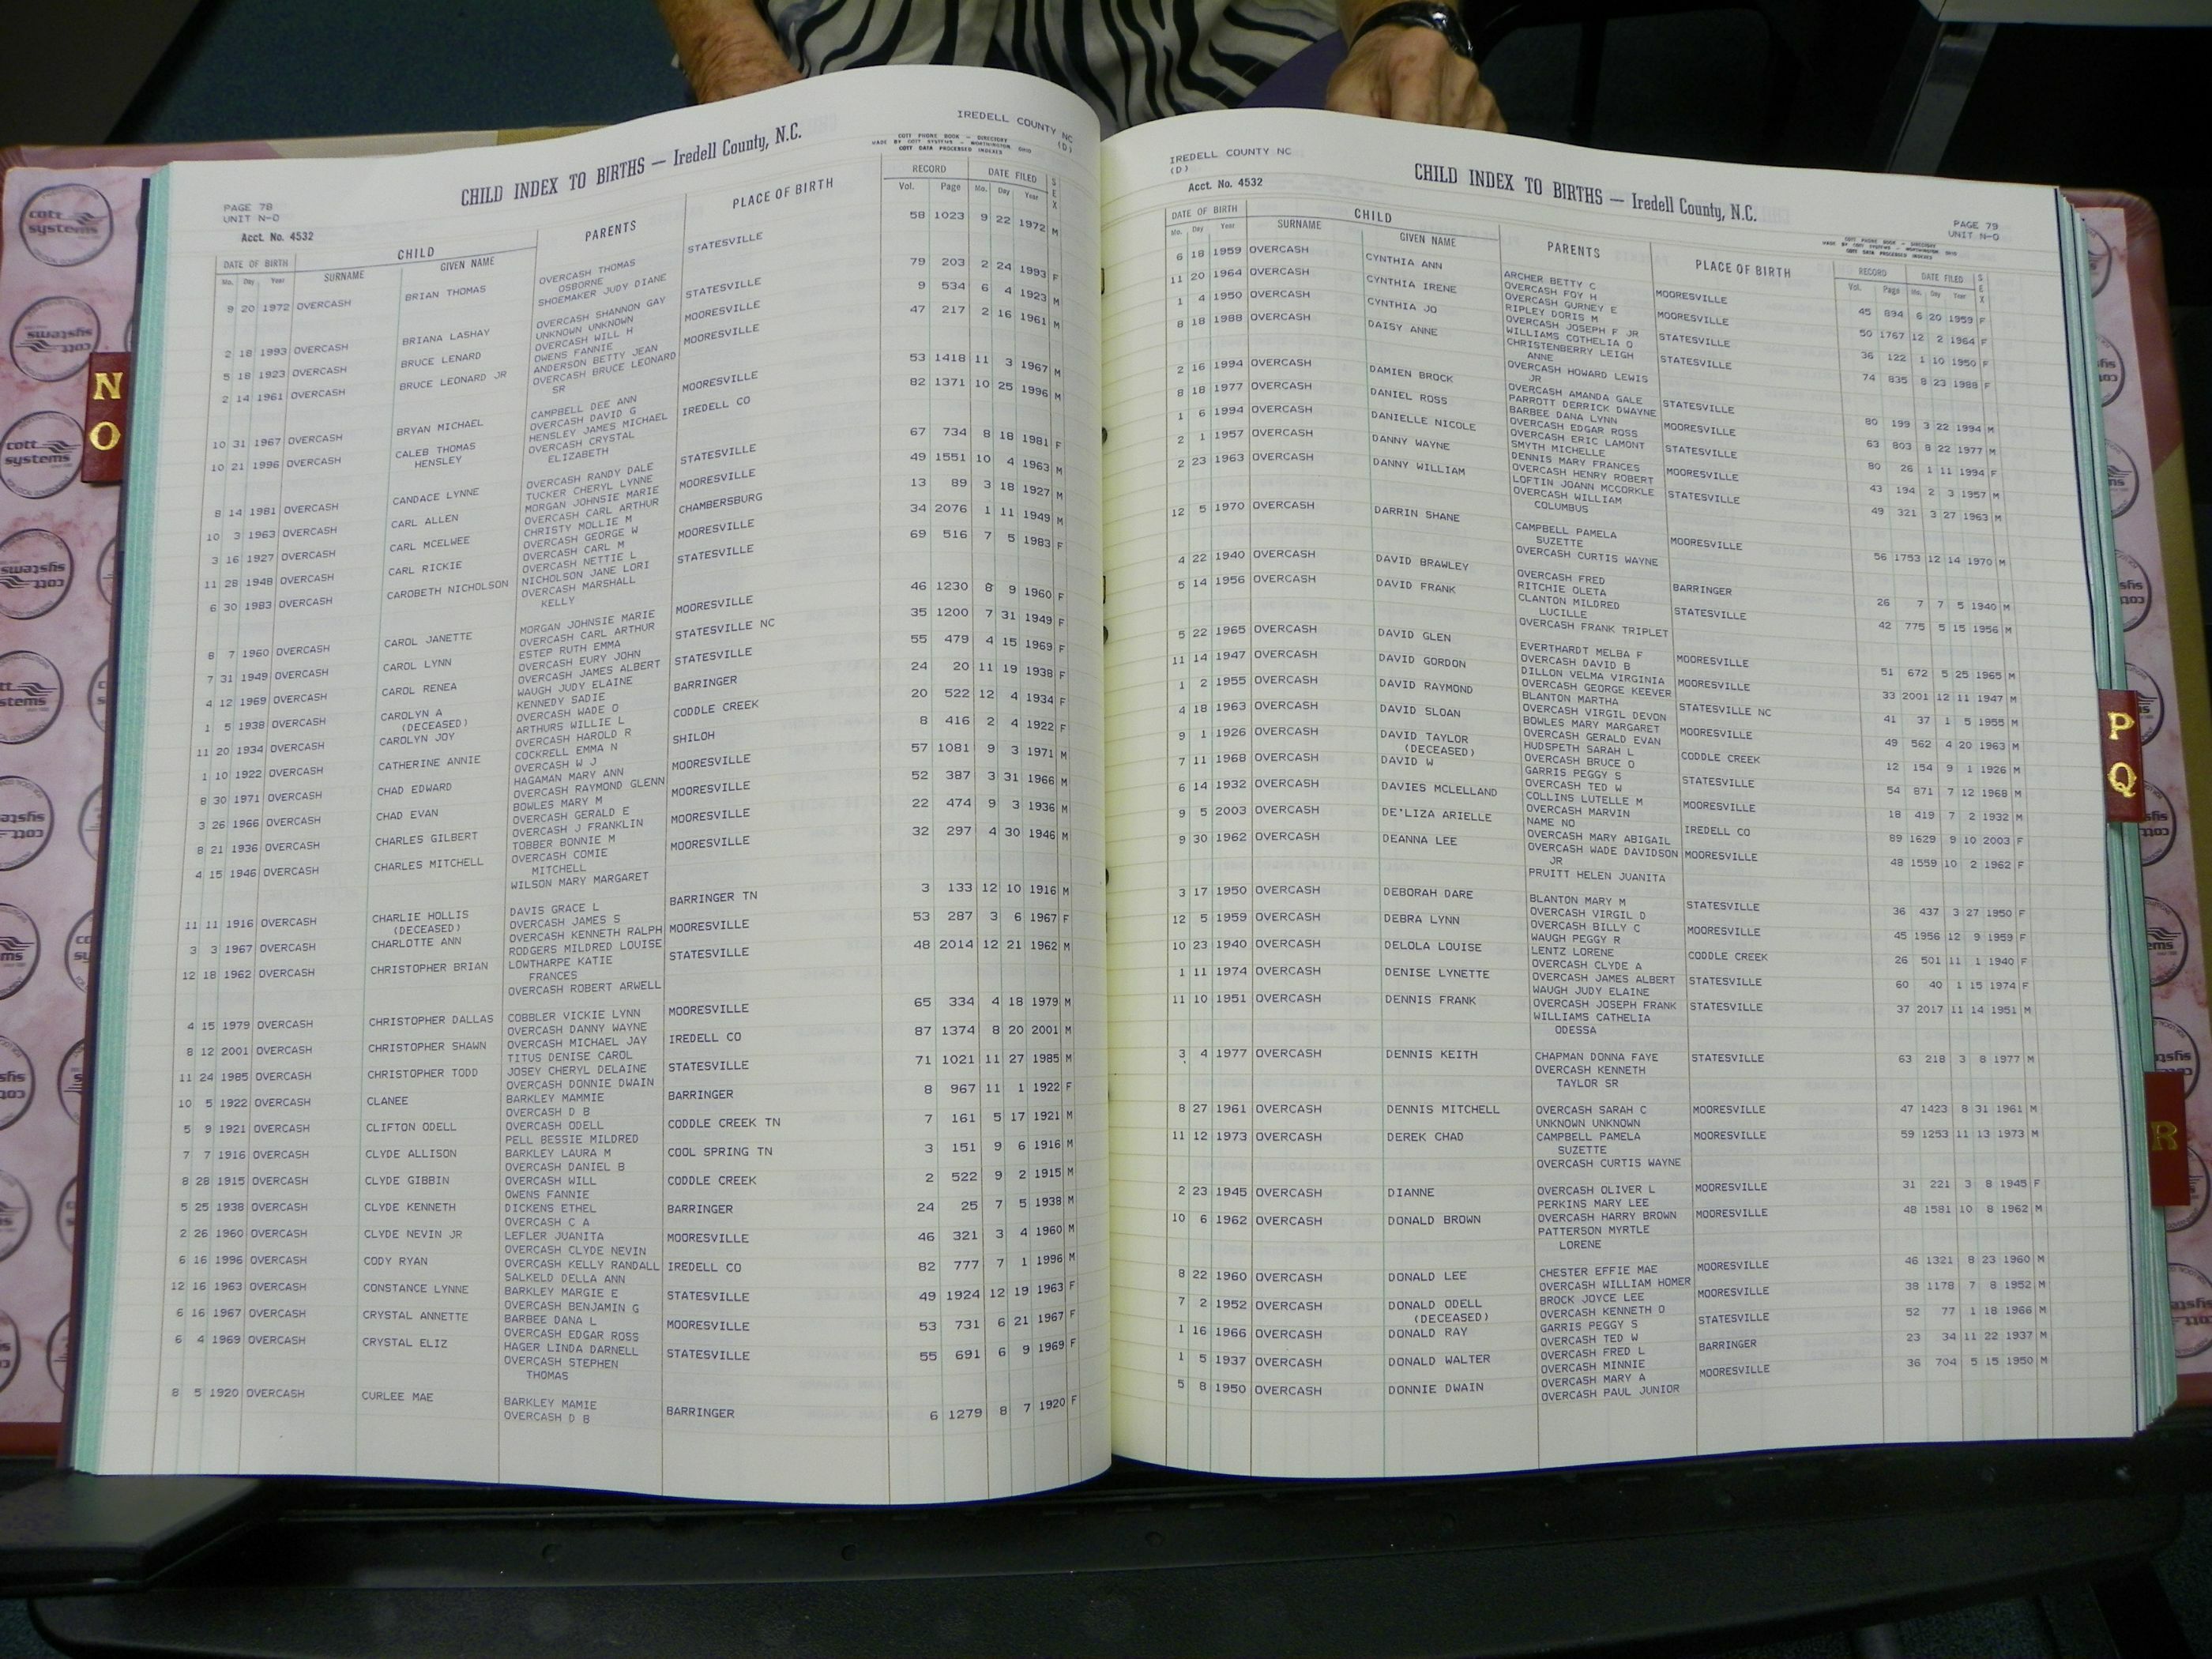 IREDELL COUNTY NC
(D)
COTT PHONE BOOK — DIRECTORY
MADE BY COTT SYSTEMS — WORTHINGTON, OHIO
COTT DATA PROCESSED INDEXES
CHILD INDEX TO BIRTHS — Iredell County, N.C.
PAGE 78
UNIT N-O
Acct. No. 4532
DATE OF BIRTH CHILD PARENTS PLACE OF BIRTH RECORD DATE FILED SEX
Mo. Day Year SURNAME GIVEN NAME Vol. Page Mo. Day Year
9 20 1972 OVERCASH BRIAN THOMAS OVERCASH THOMAS STATESVILLE 58 1023 9 22 1972 M
OSBORNE
SHOEMAKER JUDY DIANE
2 18 1993 OVERCASH BRIANA LASHAY OVERCASH SHANNON GAY STATESVILLE 79 203 2 24 1993 F
UNKNOWN UNKNOWN
5 18 1923 OVERCASH BRUCE LENARD OVERCASH WILL H MOORESVILLE 9 534 6 4 1923 M
OWENS FANNIE
2 14 1961 OVERCASH BRUCE LEONARD JR ANDERSON BETTY JEAN MOORESVILLE 47 217 2 16 1961 M
OVERCASH BRUCE LEONARD
SR
10 31 1967 OVERCASH BRYAN MICHAEL CAMPBELL DEE ANN MOORESVILLE 53 1418 11 3 1967 M
OVERCASH DAVID G
10 21 1996 OVERCASH CALEB THOMAS HENSLEY JAMES MICHAEL IREDELL CO 82 1371 10 25 1996 M
HENSLEY OVERCASH CRYSTAL
ELIZABETH
8 14 1981 OVERCASH CANDACE LYNNE OVERCASH RANDY DALE STATESVILLE 67 734 8 18 1981 F
TUCKER CHERYL LYNNE
10 3 1963 OVERCASH CARL ALLEN MORGAN JOHNSIE MARIE MOORESVILLE 49 1551 10 4 1963 M
OVERCASH CARL ARTHUR
3 16 1927 OVERCASH CARL MCELWEE CHRISTY MOLLIE M CHAMBERSBURG 13 89 3 18 1927 M
OVERCASH GEORGE W
11 28 1948 OVERCASH CARL RICKIE OVERCASH CARL M MOORESVILLE 34 2076 1 11 1949 M
OVERCASH NETTIE L
6 30 1983 OVERCASH CAROBETH NICHOLSON NICHOLSON JANE LORI STATESVILLE 69 516 7 5 1983 F
OVERCASH MARSHALL
KELLY
8 7 1960 OVERCASH CAROL JANETTE MORGAN JOHNSIE MARIE MOORESVILLE 46 1230 8 9 1960 F
OVERCASH CARL ARTHUR
7 31 1949 OVERCASH CAROL LYNN ESTEP RUTH EMMA STATESVILLE NC 35 1200 7 31 1949 F
OVERCASH EURY JOHN
4 12 1969 OVERCASH CAROL RENEA OVERCASH JAMES ALBERT STATESVILLE 55 479 4 15 1969 F
WAUGH JUDY ELAINE
1 5 1938 OVERCASH CAROLYN A KENNEDY SADIE BARRINGER 24 20 11 19 1938 F
(DECEASED) OVERCASH WADE O
11 20 1934 OVERCASH CAROLYN JOY ARTHURS WILLIE L CODDLE CREEK 20 522 12 4 1934 F
OVERCASH HAROLD R
1 10 1922 OVERCASH CATHERINE ANNIE COCKRELL EMMA N SHILOH 8 416 2 4 1922 F
OVERCASH W J
8 30 1971 OVERCASH CHAD EDWARD HAGAMAN MARY ANN MOORESVILLE 57 1081 9 3 1971 M
OVERCASH RAYMOND GLENN
3 26 1966 OVERCASH CHAD EVAN BOWLES MARY M MOORESVILLE 52 387 3 31 1966 M
OVERCASH GERALD E
8 21 1936 OVERCASH CHARLES GILBERT OVERCASH J FRANKLIN MOORESVILLE 22 474 9 3 1936 M
TOBBER BONNIE M
4 15 1946 OVERCASH CHARLES MITCHELL OVERCASH COMIE MOORESVILLE 32 297 4 30 1946 M
MITCHELL
WILSON MARY MARGARET
11 11 1916 OVERCASH CHARLIE HOLLIS DAVIS GRACE L BARRINGER TN 3 133 12 10 1916 M
(DECEASED) OVERCASH JAMES S
3 3 1967 OVERCASH CHARLOTTE ANN OVERCASH KENNETH RALPH MOORESVILLE 53 287 3 6 1967 F
RODGERS MILDRED LOUISE
12 18 1962 OVERCASH CHRISTOPHER BRIAN LOWTHARPE KATIE STATESVILLE 48 2014 12 21 1962 M
FRANCES
OVERCASH ROBERT ARWELL
4 15 1979 OVERCASH CHRISTOPHER DALLAS COBBLER VICKIE LYNN MOORESVILLE 65 334 4 18 1979 M
OVERCASH DANNY WAYNE
8 12 2001 OVERCASH CHRISTOPHER SHAWN OVERCASH MICHAEL JAY IREDELL CO 87 1374 8 20 2001 M
TITUS DENISE CAROL
11 24 1985 OVERCASH CHRISTOPHER TODD JOSEY CHERYL DELAINE STATESVILLE 71 1021 11 27 1985 M
OVERCASH DONNIE DWAIN
10 5 1922 OVERCASH CLANEE BARKLEY MAMMIE BARRINGER 8 967 11 1 1922 F
OVERCASH D B
5 9 1921 OVERCASH CLIFTON ODELL OVERCASH ODELL CODDLE CREEK TN 7 161 5 17 1921 M
PELL BESSIE MILDRED
7 7 1916 OVERCASH CLYDE ALLISON BARKLEY LAURA M COOL SPRING TN 3 151 9 6 1916 M
OVERCASH DANIEL B
8 28 1915 OVERCASH CLYDE GIBBIN OVERCASH WILL CODDLE CREEK 2 522 9 2 1915 M
OWENS FANNIE
5 25 1938 OVERCASH CLYDE KENNETH DICKENS ETHEL BARRINGER 24 25 7 5 1938 M
OVERCASH C A
2 26 1960 OVERCASH CLYDE NEVIN JR LEFLER JUANITA MOORESVILLE 46 321 3 4 1960 M
OVERCASH CLYDE NEVIN
6 16 1996 OVERCASH CODY RYAN OVERCASH KELLY RANDALL IREDELL CO 82 777 7 1 1996 M
SALKELD DELLA ANN
12 16 1963 OVERCASH CONSTANCE LYNNE BARKLEY MARGIE E STATESVILLE 49 1924 12 19 1963 F
OVERCASH BENJAMIN G
6 16 1967 OVERCASH CRYSTAL ANNETTE BARBEE DANA L MOORESVILLE 53 731 6 21 1967 F
OVERCASH EDGAR ROSS
6 4 1969 OVERCASH CRYSTAL ELIZ HAGER LINDA DARNELL STATESVILLE 55 691 6 9 1969 F
OVERCASH STEPHEN
THOMAS
8 5 1920 OVERCASH CURLEE MAE BARKLEY MAMIE BARRINGER 6 1279 8 7 1920 F
OVERCASH D B
IREDELL COUNTY NC
(D)
Acct. No. 4532
CHILD INDEX TO BIRTHS — Iredell County, N.C.
PAGE 79
UNIT N-O
COTT PHONE BOOK — DIRECTORY
MADE BY COTT SYSTEMS — WORTHINGTON, OHIO
COTT DATA PROCESSED INDEXES
DATE OF BIRTH CHILD PARENTS PLACE OF BIRTH RECORD DATE FILED SEX
Mo. Day Year SURNAME GIVEN NAME Vol. Page Mo. Day Year
6 18 1959 OVERCASH CYNTHIA ANN ARCHER BETTY C MOORESVILLE 45 894 6 20 1959 F
OVERCASH FOY H
11 20 1964 OVERCASH CYNTHIA IRENE OVERCASH GURNEY E MOORESVILLE 50 1767 12 2 1964 F
RIPLEY DORIS M
1 4 1950 OVERCASH CYNTHIA JO OVERCASH JOSEPH F JR STATESVILLE 36 122 1 10 1950 F
WILLIAMS COTHELIA O
8 18 1988 OVERCASH DAISY ANNE CHRISTENBERRY LEIGH STATESVILLE 74 835 8 23 1988 F
ANNE
OVERCASH HOWARD LEWIS
JR
2 16 1994 OVERCASH DAMIEN BROCK OVERCASH AMANDA GALE STATESVILLE 80 199 3 22 1994 M
PARROTT DERRICK DWAYNE
8 18 1977 OVERCASH DANIEL ROSS BARBEE DANA LYNN MOORESVILLE 63 803 8 22 1977 M
OVERCASH EDGAR ROSS
1 6 1994 OVERCASH DANIELLE NICOLE OVERCASH ERIC LAMONT STATESVILLE 80 26 1 11 1994 F
SMYTH MICHELLE
2 1 1957 OVERCASH DANNY WAYNE DENNIS MARY FRANCES MOORESVILLE 43 194 2 3 1957 M
OVERCASH HENRY ROBERT
2 23 1963 OVERCASH DANNY WILLIAM LOFTIN JOANN MCCORKLE STATESVILLE 49 321 3 27 1963 M
OVERCASH WILLIAM
COLUMBUS
12 5 1970 OVERCASH DARRIN SHANE CAMPBELL PAMELA MOORESVILLE 56 1753 12 14 1970 M
SUZETTE
OVERCASH CURTIS WAYNE
4 22 1940 OVERCASH DAVID BRAWLEY OVERCASH FRED BARRINGER 26 7 7 5 1940 M
RITCHIE OLETA
5 14 1956 OVERCASH DAVID FRANK CLANTON MILDRED STATESVILLE 42 775 5 15 1956 M
LUCILLE
OVERCASH FRANK TRIPLET
5 22 1965 OVERCASH DAVID GLEN EVERTHARDT MELBA F MOORESVILLE 51 672 5 25 1965 M
OVERCASH DAVID B
11 14 1947 OVERCASH DAVID GORDON DILLON VELMA VIRGINIA MOORESVILLE 33 2001 12 11 1947 M
OVERCASH GEORGE KEEVER
1 2 1955 OVERCASH DAVID RAYMOND BLANTON MARTHA STATESVILLE NC 41 37 1 5 1955 M
OVERCASH VIRGIL DEVON
4 18 1963 OVERCASH DAVID SLOAN BOWLES MARY MARGARET MOORESVILLE 49 562 4 20 1963 M
OVERCASH GERALD EVAN
9 1 1926 OVERCASH DAVID TAYLOR HUDSPETH SARAH L CODDLE CREEK 12 154 9 1 1926 M
(DECEASED) OVERCASH BRUCE O
7 11 1968 OVERCASH DAVID W GARRIS PEGGY S STATESVILLE 54 871 7 12 1968 M
OVERCASH TED W
6 14 1932 OVERCASH DAVIES MCLELLAND COLLINS LUTELLE M MOORESVILLE 18 419 7 2 1932 M
OVERCASH MARVIN
9 5 2003 OVERCASH DE'LIZA ARIELLE NAME NO IREDELL CO 89 1629 9 10 2003 F
OVERCASH MARY ABIGAIL
9 30 1962 OVERCASH DEANNA LEE OVERCASH WADE DAVIDSON MOORESVILLE 48 1559 10 2 1962 F
JR
PRUITT HELEN JUANITA
3 17 1950 OVERCASH DEBORAH DARE BLANTON MARY M STATESVILLE 36 437 3 27 1950 F
OVERCASH VIRGIL D
12 5 1959 OVERCASH DEBRA LYNN OVERCASH BILLY C MOORESVILLE 45 1956 12 9 1959 F
WAUGH PEGGY R
10 23 1940 OVERCASH DELOLA LOUISE LENTZ LORENE CODDLE CREEK 26 501 11 1 1940 F
OVERCASH CLYDE A
1 11 1974 OVERCASH DENISE LYNETTE OVERCASH JAMES ALBERT STATESVILLE 60 40 1 15 1974 F
WAUGH JUDY ELAINE
11 10 1951 OVERCASH DENNIS FRANK OVERCASH JOSEPH FRANK STATESVILLE 37 2017 11 14 1951 M
WILLIAMS CATHELIA
ODESSA
3 4 1977 OVERCASH DENNIS KEITH CHAPMAN DONNA FAYE STATESVILLE 63 218 3 8 1977 M
OVERCASH KENNETH
TAYLOR SR
8 27 1961 OVERCASH DENNIS MITCHELL OVERCASH SARAH C MOORESVILLE 47 1423 8 31 1961 M
UNKNOWN UNKNOWN
11 12 1973 OVERCASH DEREK CHAD CAMPBELL PAMELA MOORESVILLE 59 1253 11 13 1973 M
SUZETTE
OVERCASH CURTIS WAYNE
2 23 1945 OVERCASH DIANNE OVERCASH OLIVER L MOORESVILLE 31 221 3 8 1945 F
PERKINS MARY LEE
10 6 1962 OVERCASH DONALD BROWN OVERCASH HARRY BROWN MOORESVILLE 48 1581 10 8 1962 M
PATTERSON MYRTLE
LORENE
8 22 1960 OVERCASH DONALD LEE CHESTER EFFIE MAE MOORESVILLE 46 1321 8 23 1960 M
OVERCASH WILLIAM HOMER
7 2 1952 OVERCASH DONALD ODELL BROCK JOYCE LEE MOORESVILLE 38 1178 7 8 1952 M
(DECEASED) OVERCASH KENNETH O
1 16 1966 OVERCASH DONALD RAY GARRIS PEGGY S STATESVILLE 52 77 1 18 1966 M
OVERCASH TED W
1 5 1937 OVERCASH DONALD WALTER OVERCASH FRED L BARRINGER 23 34 11 22 1937 M
OVERCASH MINNIE
5 8 1950 OVERCASH DONNIE DWAIN OVERCASH MARY A MOORESVILLE 36 704 5 15 1950 M
OVERCASH PAUL JUNIOR
N
O
P
Q
R
cott
systems